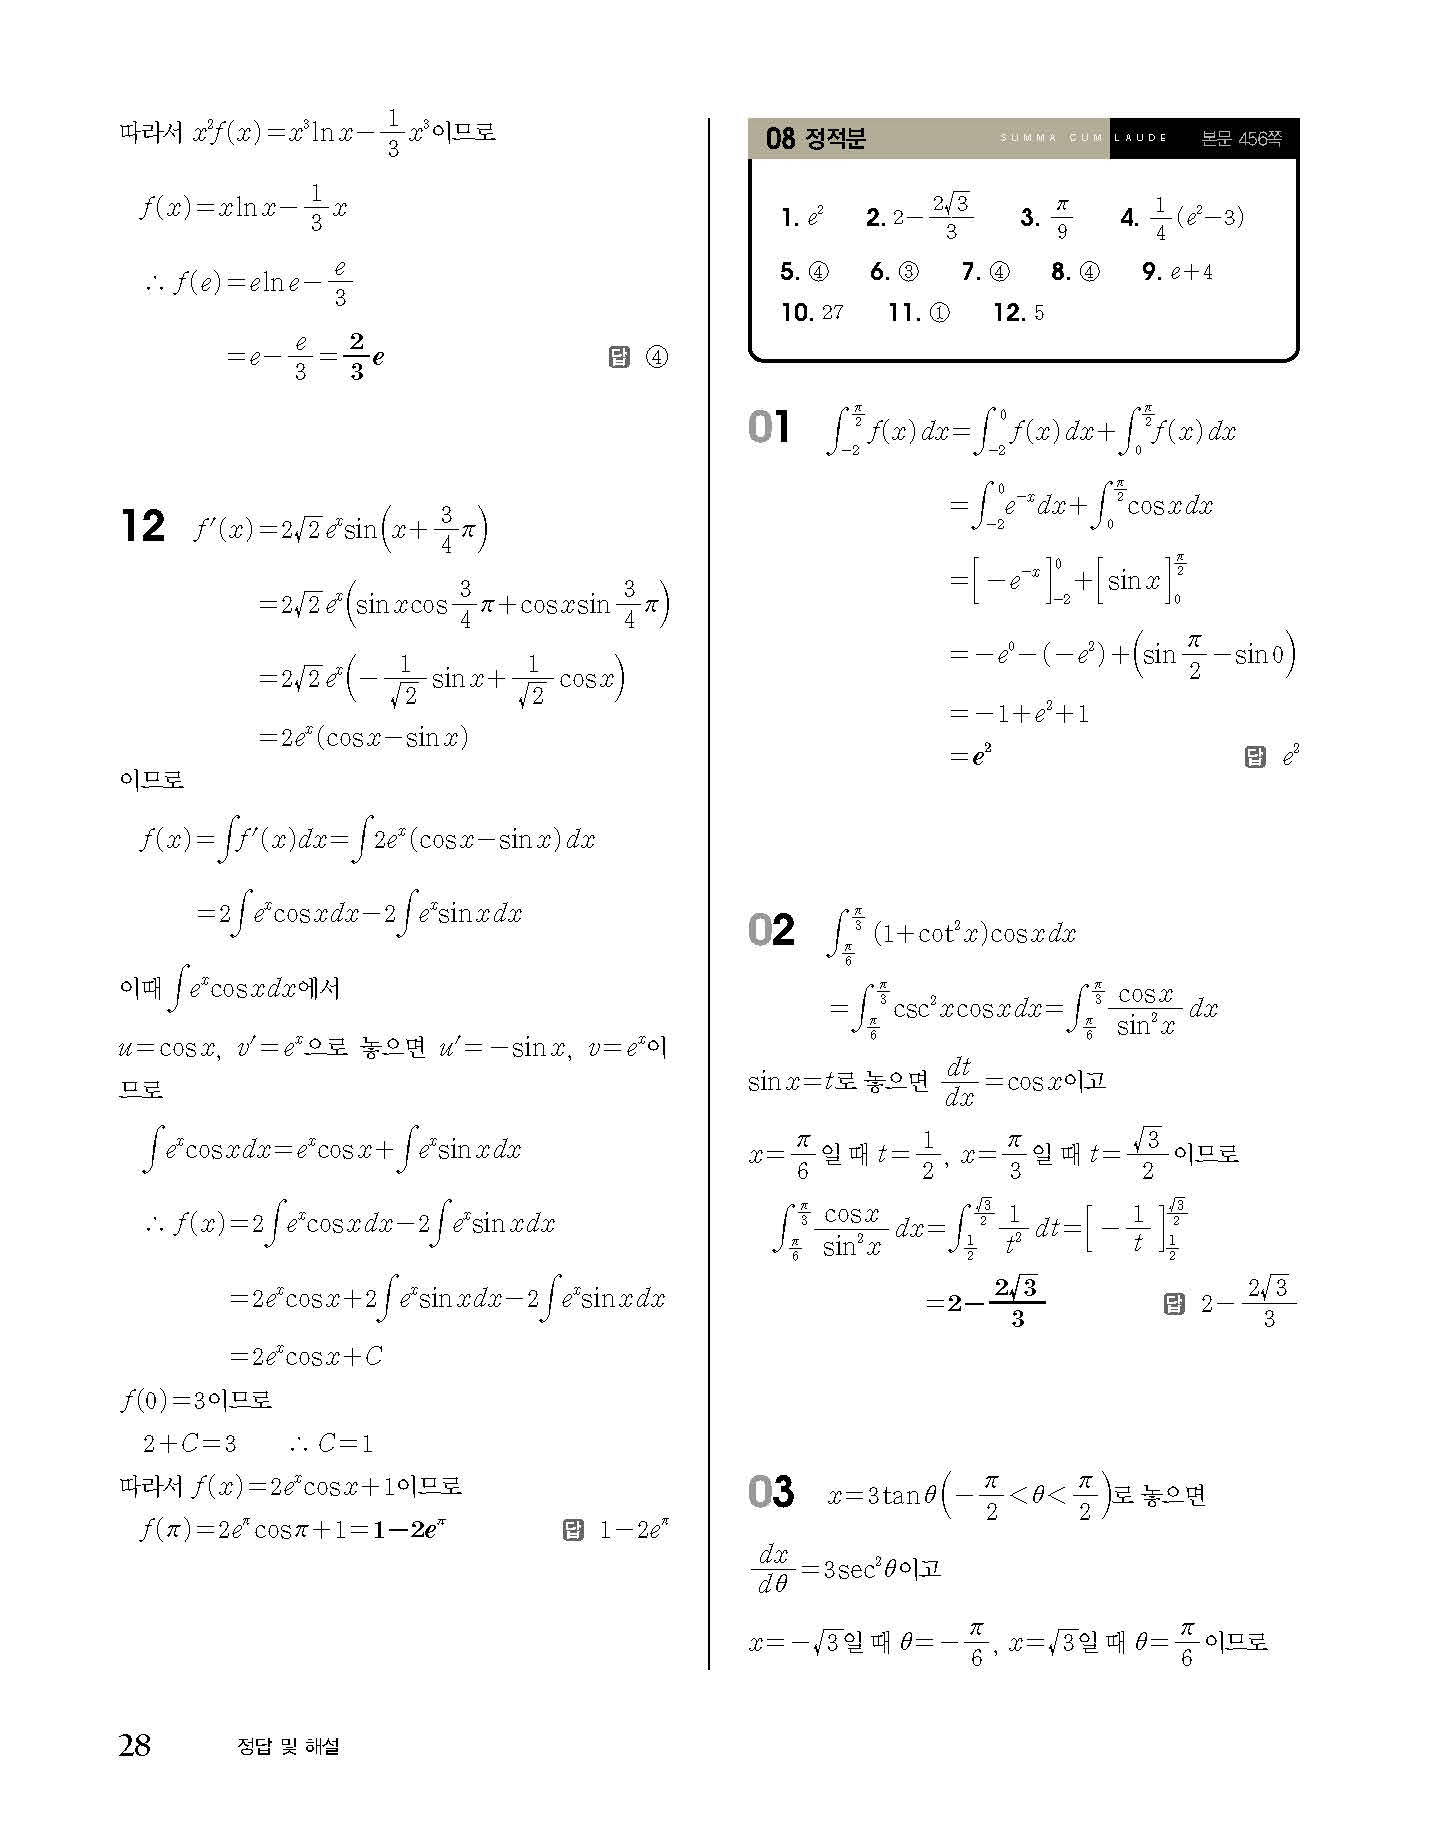 따라서 x²f(x)=x³ln x−1/3 x³이므로
f(x)=xln x−1/3 x
∴ f(e)=eln e−e/3
=e−e/3=2/3 e 답 ④
12 f′(x)=2√2 eˣsin(x+3/4 π)
=2√2 eˣ(sin xcos 3/4 π+cos xsin 3/4 π)
=2√2 eˣ(−1/√2 sin x+1/√2 cos x)
=2eˣ(cos x−sin x)
이므로
f(x)=∫f′(x)dx=∫2eˣ(cos x−sin x)dx
=2∫eˣcos xdx−2∫eˣsin xdx
이때 ∫eˣcos xdx에서
u=cos x, v′=eˣ으로 놓으면 u′=−sin x, v=eˣ이
므로
∫eˣcos xdx=eˣcos x+∫eˣsin xdx
∴ f(x)=2∫eˣcos xdx−2∫eˣsin xdx
=2eˣcos x+2∫eˣsin xdx−2∫eˣsin xdx
=2eˣcos x+C
f(0)=3이므로
2+C=3 ∴ C=1
따라서 f(x)=2eˣcos x+1이므로
f(π)=2e^π cos π+1=1−2e^π 답 1−2e^π
08 정적분 SUMMA CUM LAUDE 본문 456쪽
1. e² 2. 2−2√3/3 3. π/9 4. 1/4(e²−3)
5. ④ 6. ③ 7. ④ 8. ④ 9. e+4
10. 27 11. ① 12. 5
01 ∫_{−2}^{π/2} f(x)dx=∫_{−2}^{0} f(x)dx+∫_{0}^{π/2} f(x)dx
=∫_{−2}^{0} e^{−x}dx+∫_{0}^{π/2} cos xdx
=[−e^{−x}]_{−2}^{0}+[sin x]_{0}^{π/2}
=−e⁰−(−e²)+(sin π/2−sin 0)
=−1+e²+1
=e² 답 e²
02 ∫_{π/6}^{π/3} (1+cot²x)cos xdx
=∫_{π/6}^{π/3} csc²xcos xdx=∫_{π/6}^{π/3} cos x/sin²x dx
sin x=t로 놓으면 dt/dx=cos x이고
x=π/6일 때 t=1/2, x=π/3일 때 t=√3/2이므로
∫_{π/6}^{π/3} cos x/sin²x dx=∫_{1/2}^{√3/2} 1/t² dt=[−1/t]_{1/2}^{√3/2}
=2−2√3/3 답 2−2√3/3
03 x=3tan θ(−π/2<θ<π/2)로 놓으면
dx/dθ=3sec²θ이고
x=−√3일 때 θ=−π/6, x=√3일 때 θ=π/6이므로
28 정답 및 해설